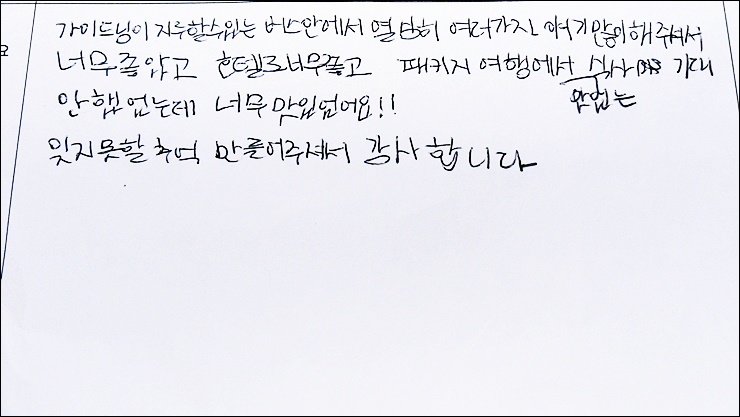 가이드님이 지루할수있는 버스안에서 열심히 여러가지 얘기많이해주셔서
너무좋았고 호텔도너무좋고 패키지여행에서 식사 기대
안했었는데 너무맛있었어요!!
잊지못할추억 만들어주셔서 감사합니다